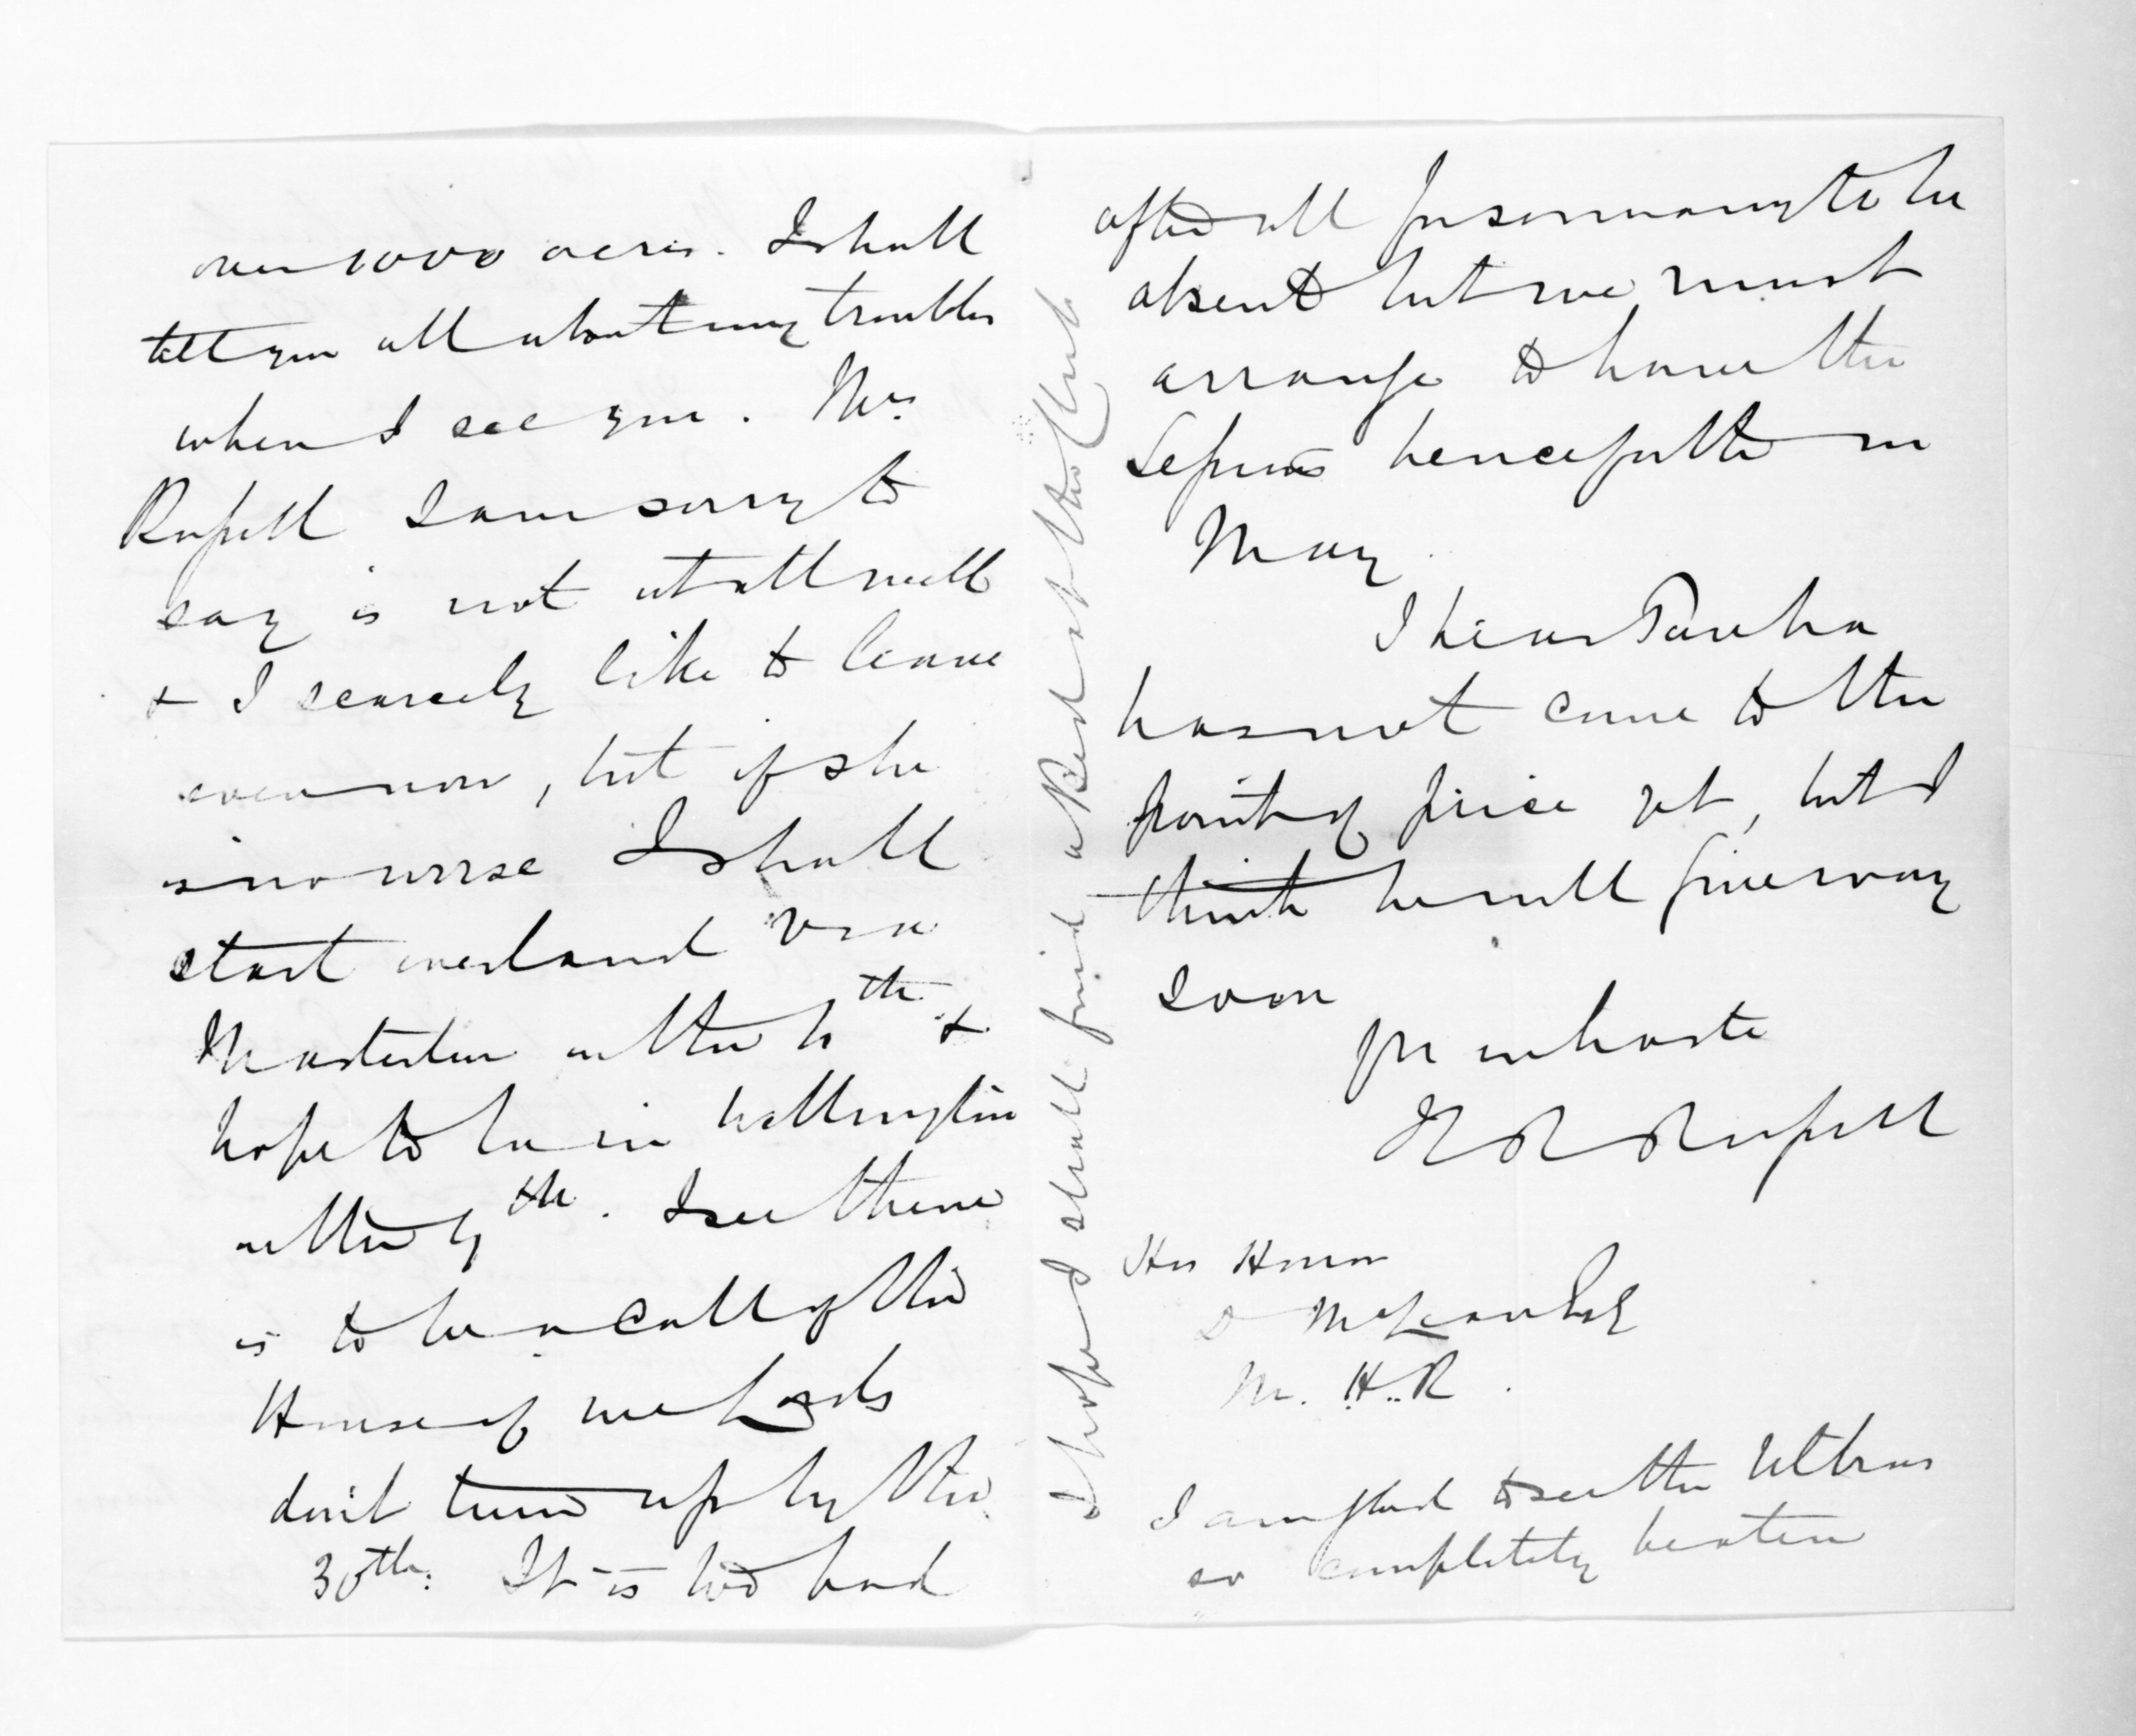 over 1000 acres. I shall
tell you all about my troubles
when I see you. Mrs
Russell I am sorry to
say is not at all well
& I scarcely like to leave
even now, but if she
is no worse I shall
start overland via
Masterton on the &
hope to be in Wellington
on the th. I see there
is to be a call of the
House if we Lords
don't turn up by the
30th. It is too bad
after all for so many to be
absent but we must
arrange to have the
Session henceforth in
May.
I hear Tareha
has not come to the
point of price yet, but I
think he will give way
soon
Yrs in haste
H R Russell
His Honor
D McLean Esq
M. H. R.
I am glad to see the Ultras
so completely beaten
I hope I shall find a Bed at the Club